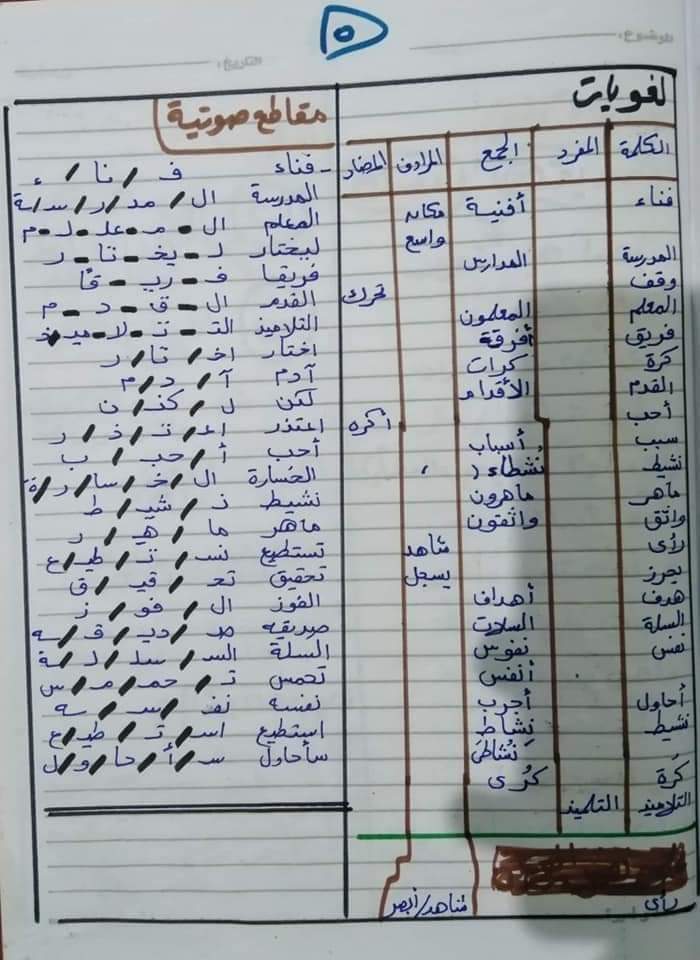 ٥
الموضوع:
التاريخ:
لغويات
الكلمة المفرد الجمع المرادف المضاد
فناء أفنية مكان واسع
المدرسة المدارس
وقف تحرك
المعلم المعلمون
فريق أفرقة
كرة كرات
القدم الأقدام
أحب أكره
سبب أسباب
نشيط نُشطاء
ماهر ماهرون
واثق واثقون
رأى شاهد
يحرز يسجل
هدف أهداف
السلة السلات
نفس نفوس
أنفس
أحاول أجرب
نشيط نِشاط
نُشاطى
كُرة كُرى
التلاميذ التلميذ
رأى شاهد/أبصر
مقاطع صوتية
- فناء ف / نا / ء
المدرسة ال / مد / ر / سـ / ـة
المعلم ال - مـ - علـ - لـ - م
ليختار لـ - يخـ - تا - ر
فريقا فـ - ريـ - قًا
القدم ال - قـ - د - م
التلاميذ التـ - تـ - لا - ميـ - ذ
اختار اخـ / تا / ر
آدم آ / د / م
لكن ل / كنـ / ن
اعتذر اعـ / تـ / ذ / ر
أحب أ / حب / ب
الخسارة ال / خـ / سا / ر / ة
نشيط نـ / شيـ / ط
ماهر ما / هـ / ر
تستطيع تسـ / تـ / طيـ / ع
تحقيق تحـ / قيـ / ق
الفوز ال / فو / ز
صديقه صـ / ديـ / قـ / ـه
السلة السـ / سلـ / لـ / ـة
تحمس تـ / حمـ / مـ / س
نفسه نفـ / سـ / ـه
استطيع اسـ / تـ / طيـ / ع
سأحاول سـ / أ / حا / و / ل